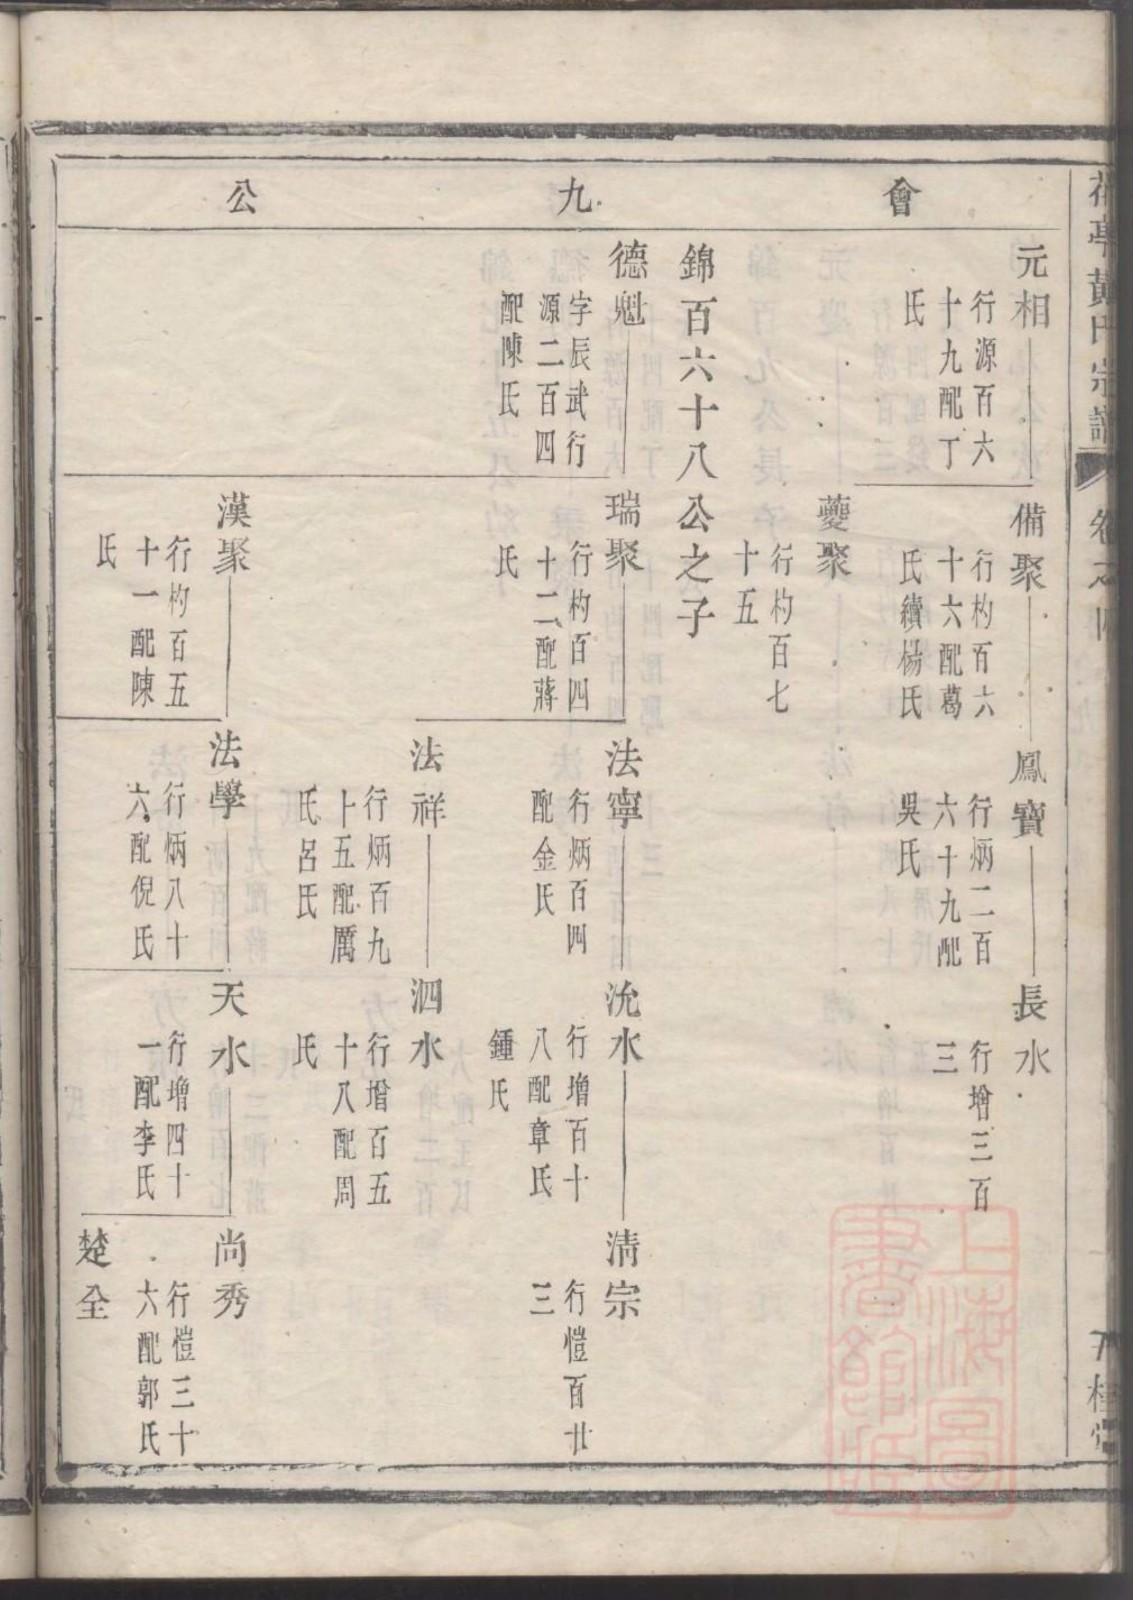 黃氏宗譜
卷之四
會九公
元相
行源百六
十九配丁
氏
備聚
行杓百六
十六配葛
氏續楊氏
鳳寶
行炳二百
六十九配
吳氏
長水
行增三百
三
夔聚
行杓百七
十五
錦百六十八公之子
德魁
字辰武行
源二百四
配陳氏
瑞聚
行杓百四
十二配蔣
氏
法寧
行炳百四
配金氏
沇水
行增百十
八配章氏
鍾氏
清宗
行愷百廿
三
法祥
行炳百九
十五配厲
氏呂氏
泗水
行增百五
十八配周
氏
漢聚
行杓百五
十一配陳
氏
法學
行炳八十
六配倪氏
天水
行增四十
一配李氏
尚秀
行愷三十
六配郭氏
楚全
上海圖
書館藏